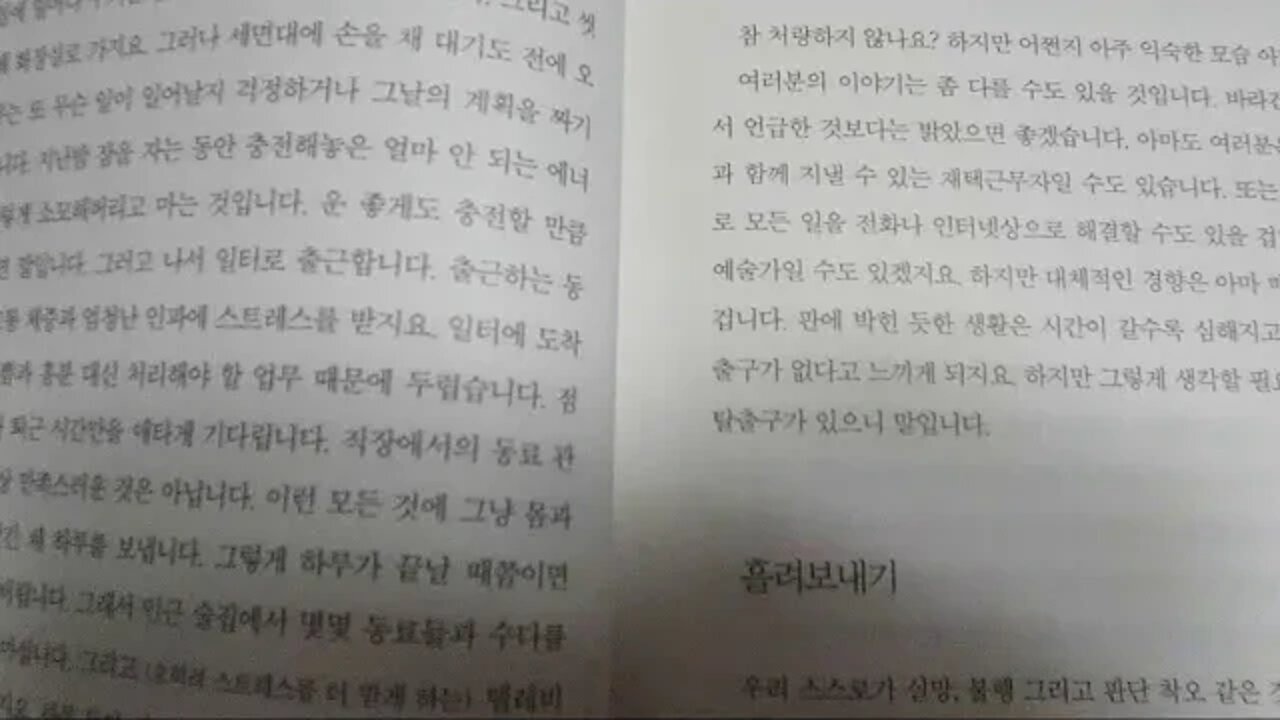 그리고 씻
화장실로 가지요. 그러나 세면대에 손을 채 대기도 전에 오
또 무슨 일이 일어날지 걱정하거나 그날의 계획을 짜기
지난밤 잠을 자는 동안 충전해놓은 얼마 안 되는 에너
소모해버리고 마는 것입니다. 운 좋게도 충전할 만큼
말입니다. 그러고 나서 일터로 출근합니다. 출근하는 동
체증과 엄청난 인파에 스트레스를 받지요. 일터에 도착
흥분 대신 처리해야 할 업무 때문에 두렵습니다. 점
퇴근 시간만을 애타게 기다립니다. 직장에서의 동료 관
만족스러운 것은 아닙니다. 이런 모든 것에 그냥 몸과
채 하루를 보냅니다. 그렇게 하루가 끝날 때쯤이면
그래서 인근 술집에서 몇몇 동료들과 수다를
마십니다. 그리고 (오히려 스트레스를 더 받게 하는) 텔레비
참 처량하지 않나요? 하지만 어쩐지 아주 익숙한 모습 아
여러분의 이야기는 좀 다를 수도 있을 것입니다. 바라건
서 언급한 것보다는 밝았으면 좋겠습니다. 아마도 여러분은
과 함께 지낼 수 있는 재택근무자일 수도 있습니다. 또는
로 모든 일을 전화나 인터넷상으로 해결할 수도 있을 겁
예술가일 수도 있겠지요. 하지만 대체적인 경향은 아마
겁니다. 판에 박힌 듯한 생활은 시간이 갈수록 심해지고
출구가 없다고 느끼게 되지요. 하지만 그렇게 생각할 필요
탈출구가 있으니 말입니다.
흘려보내기
우리 스스로가 실망, 불행 그리고 판단 착오 같은